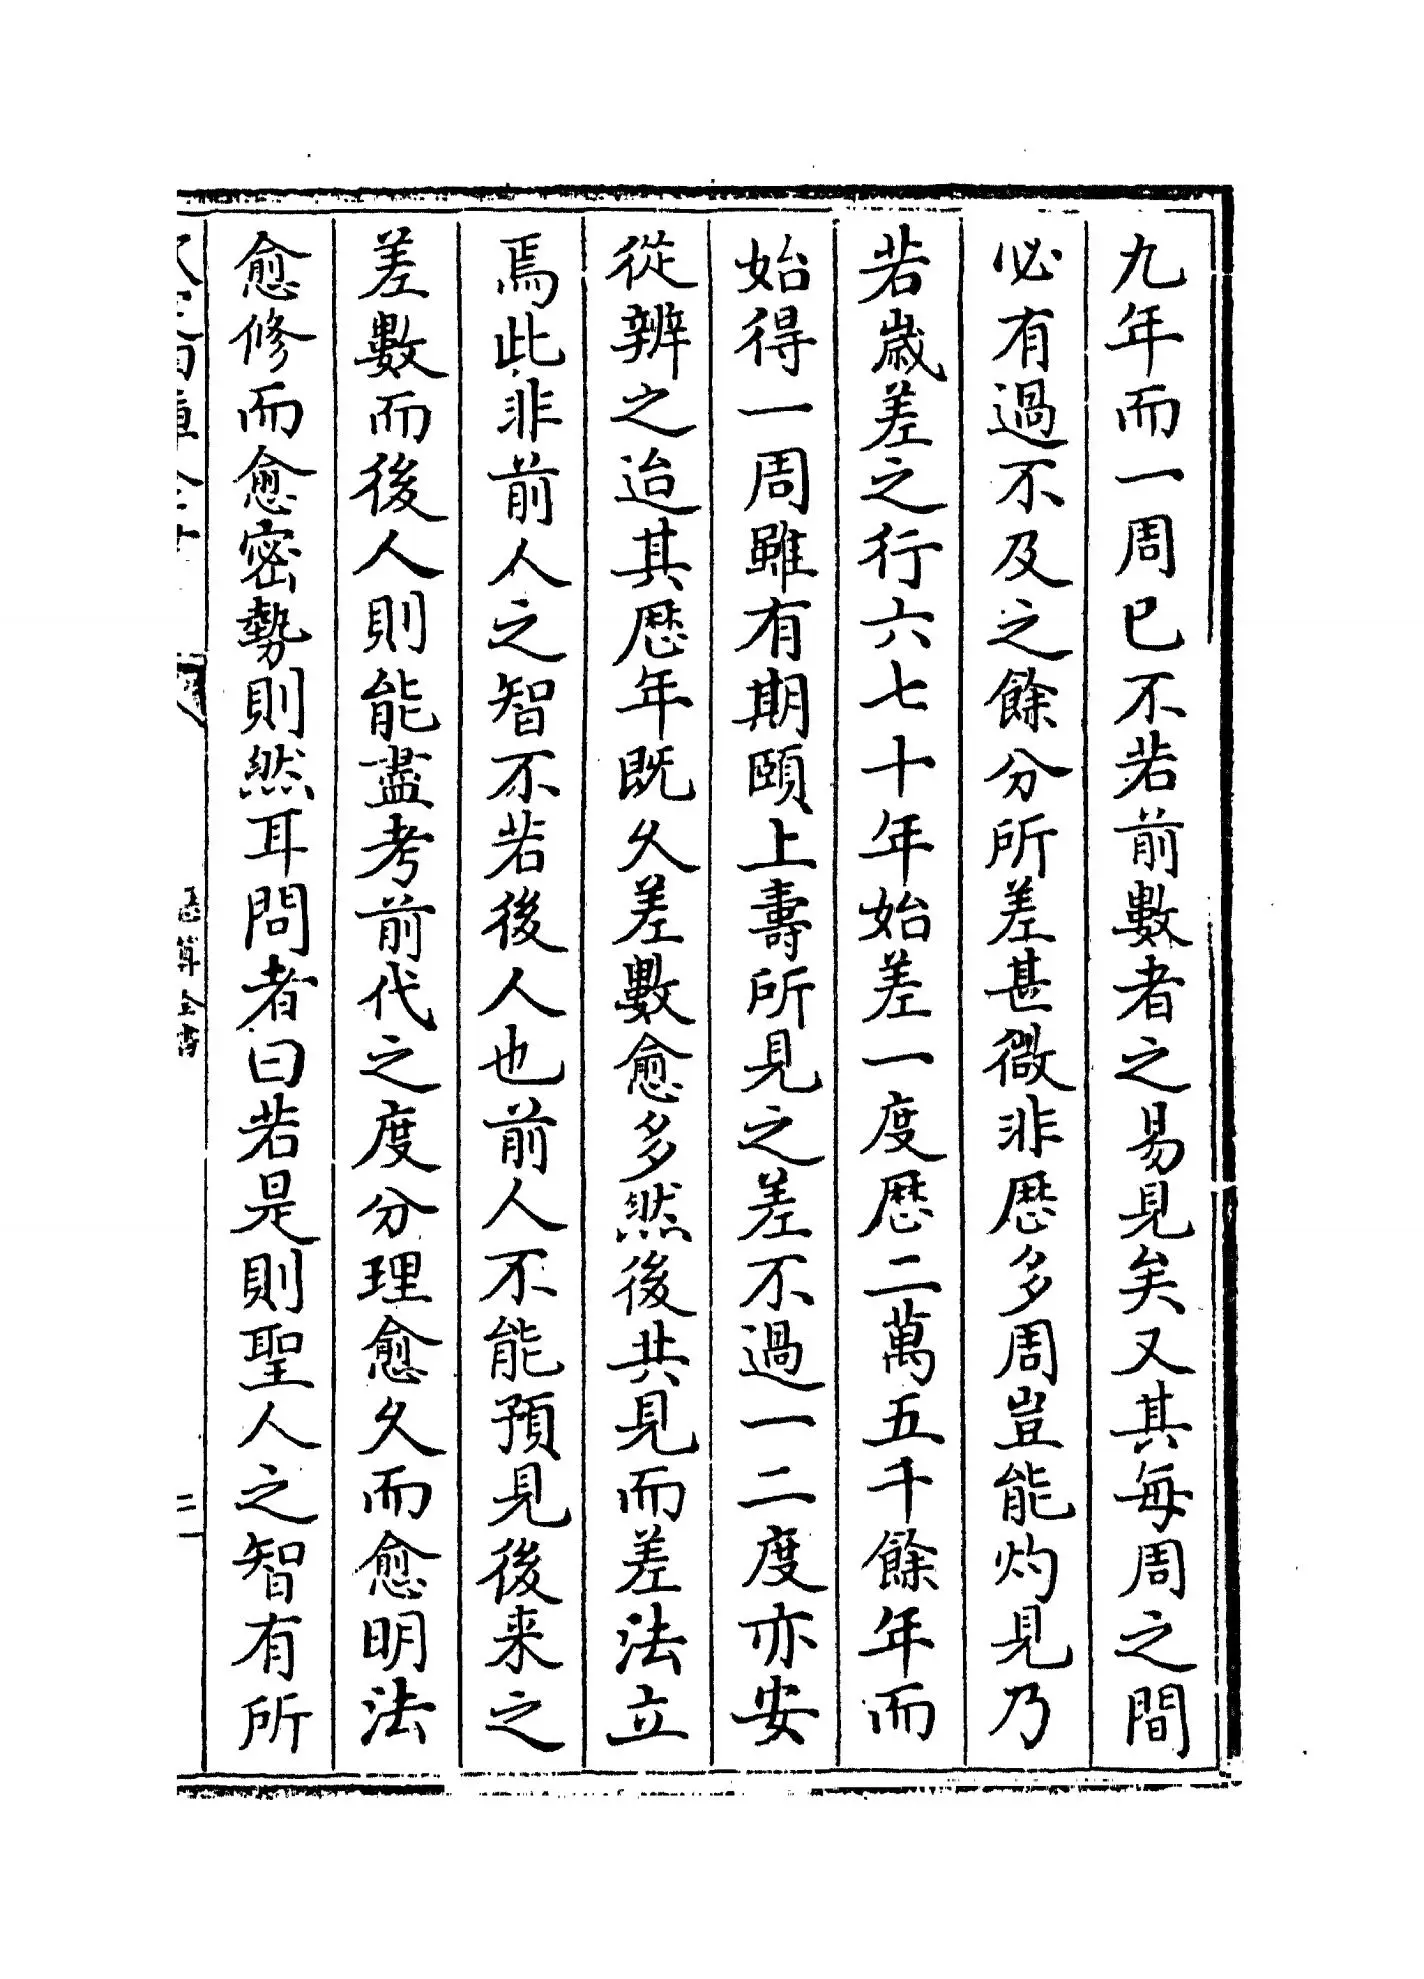 九年而一周已不若前數者之易見矣又其每周之間
必有過不及之餘分所差甚微非歴多周豈能灼見乃
若歲差之行六七十年始差一度歴二萬五千餘年而
始得一周雖有期頤上壽所見之差不過一二度亦安
從辨之迨其歴年既久差數愈多然後共見而差法立
焉此非前人之智不若後人也前人不能預見後来之
差數而後人則能盡考前代之度分理愈久而愈明法
愈修而愈密勢則然耳問者曰若是則聖人之智有所
算全書